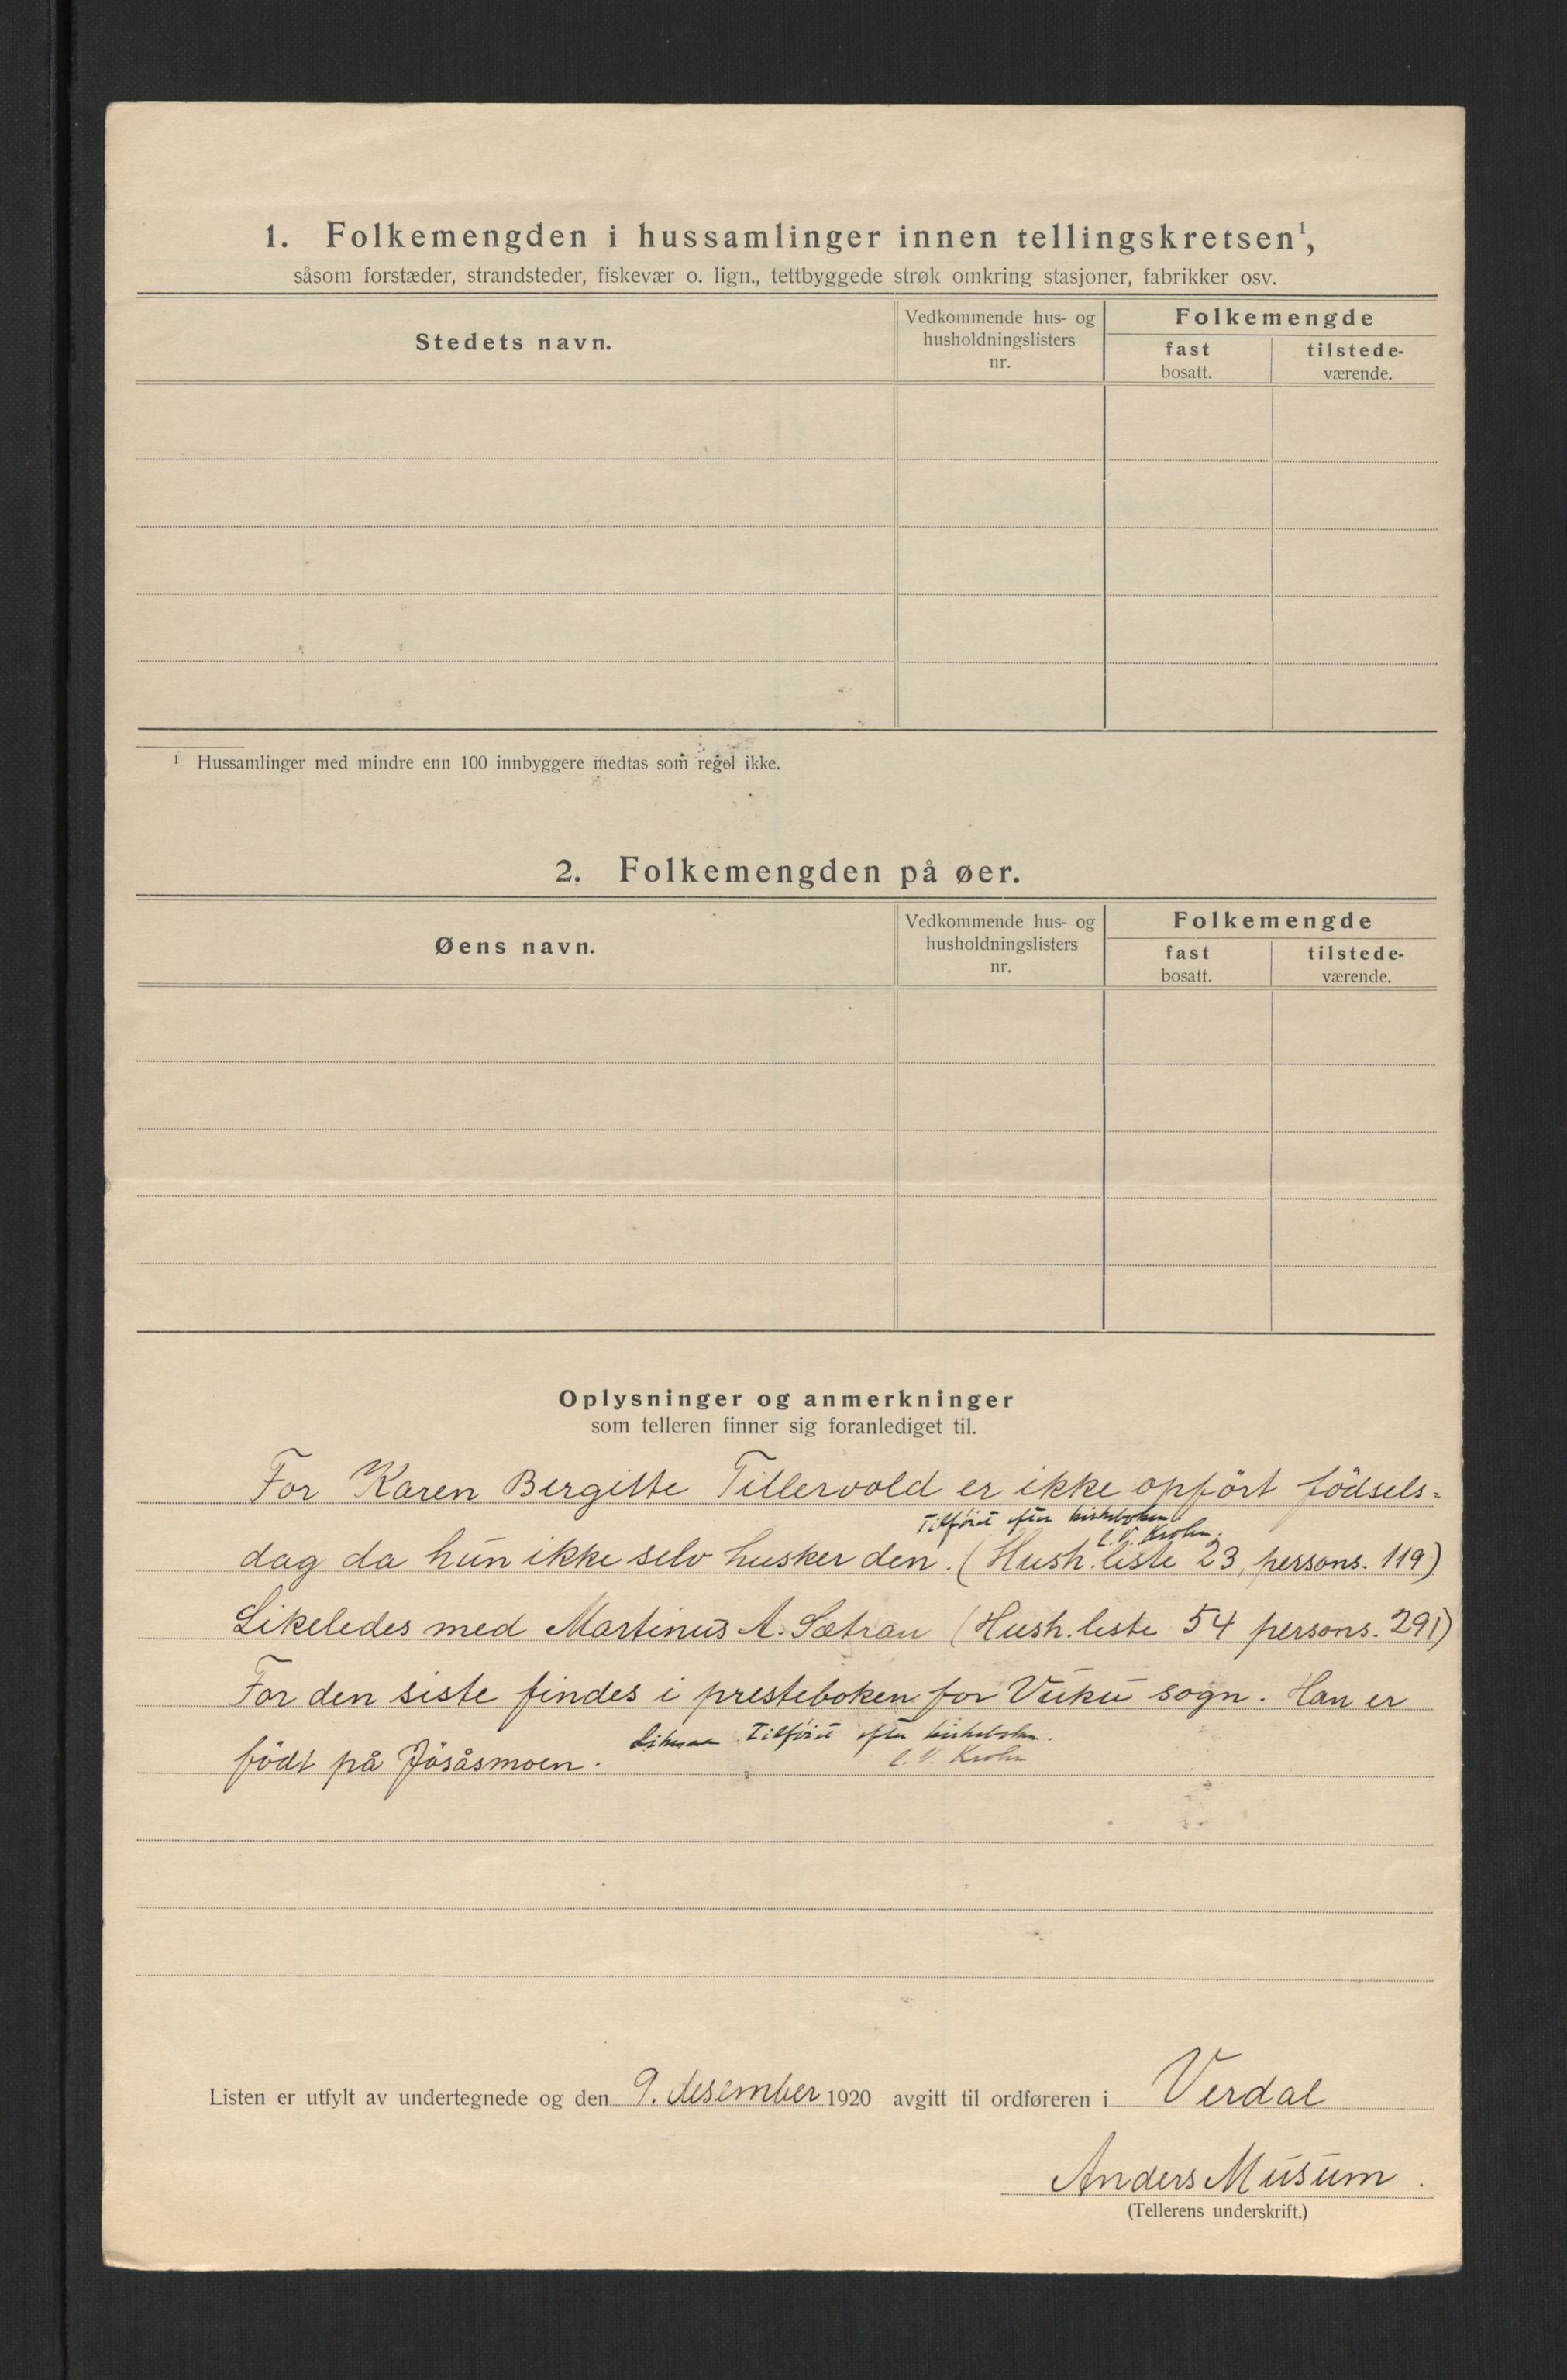 1. Folkemengden i hussamlinger innen tellingskretsen¹,
såsom forstæder, strandsteder, fiskevær o. lign., tettbyggede strøk omkring stasjoner, fabrikker osv.
Stedets navn.
Vedkommende hus- og
husholdningslisters
nr.
Folkemengde
fast
bosatt.
tilstede-
værende.
¹ Hussamlinger med mindre enn 100 innbyggere medtas som regel ikke.
2. Folkemengden på øer.
Øens navn.
Vedkommende hus- og
husholdningslisters
nr.
Folkemengde
fast
bosatt.
tilstede-
værende.
Oplysninger og anmerkninger
som telleren finner sig foranlediget til.
For Karen Bergitte Tillervold er ikke opført fødsels=
Tilføiet efter kirkeboken.
C. V. Krohn.
dag da hun ikke selv husker den. (Hush. liste 23, persons. 119)
Likeledes med Martinus A. Sætran (Hush. liste 54 persons. 291)
For den siste findes i presteboken for Vuku sogn. Han er
født på Jøsåsmoen.
Tilføiet efter kirkeboken.
C. V. Krohn
Listen er utfylt av undertegnede og den 9. desember 1920 avgitt til ordføreren i Verdal
Anders Musum.
(Tellerens underskrift.)